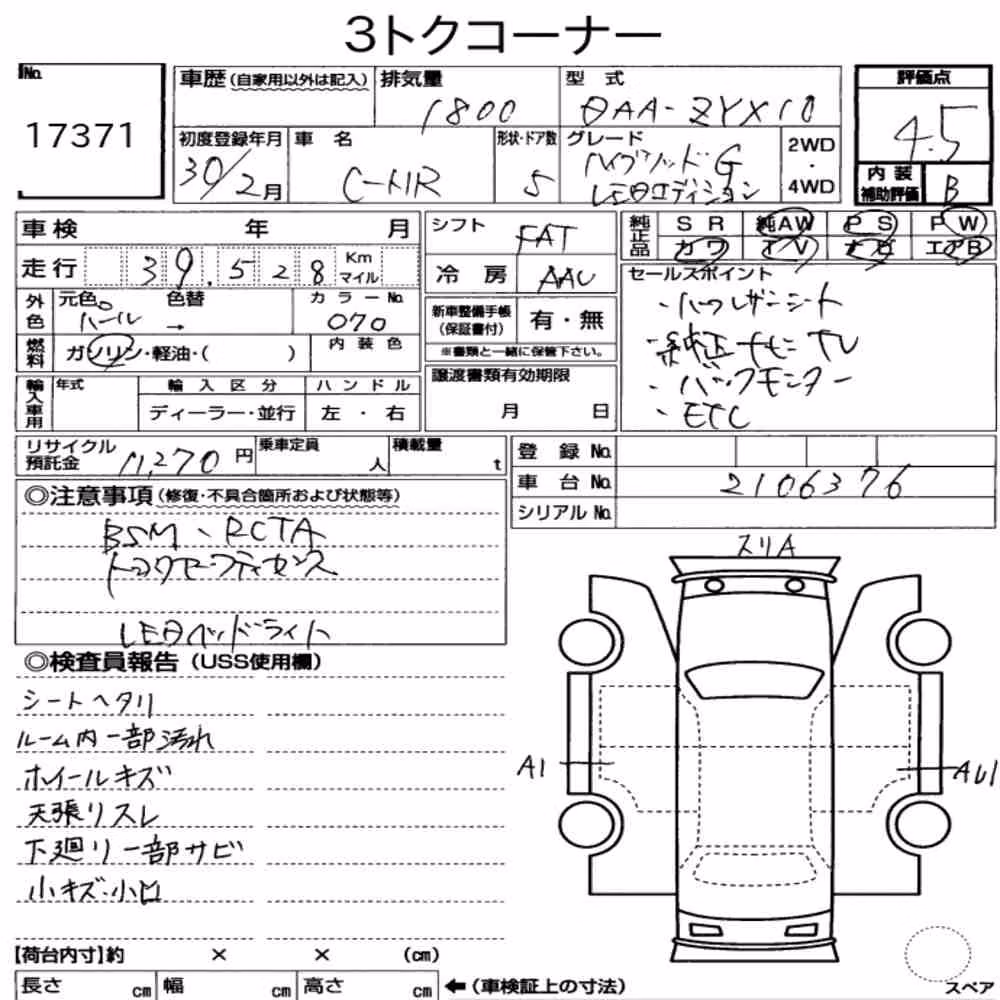 3トクコーナー
No.
17371
車歴(自家用以外は記入)
排気量
1800
型 式
DAA-ZYX10
評価点
4.5
初度登録年月
30/2月
車 名
C-HR
形状・ドア数
5
グレード
ハイブリッド・G
LEDエディション
2WD
・
4WD
内装
補助評価
B
車検 年 月
走行 39.528 Km マイル
シフト
FAT
冷 房
AAC
純正品
SR 純AW PS PW
カワ TV ナビ エアB
外色
元色 色替
パール →
カラーNo.
070
新車整備手帳
(保証書付)
有・無
※書類と一緒に保管下さい。
セールスポイント
・ハーフレザーシート
・純正ナビTV
・バックモニター
・ETC
燃料
ガソリン・軽油・( )
内装色
譲渡書類有効期限
月 日
輸入車用
年式
輸入区分
ディーラー・並行
ハンドル
左・右
リサイクル
預託金
11,270円
乗車定員
人
積載量
t
登録No.
車台No. 2106376
シリアルNo.
◎注意事項(修復・不具合箇所および状態等)
BSM、RCTA
トヨタセーフティセンス
LEDヘッドライト
◎検査員報告(USS使用欄)
シートヘタリ
ルーム内一部汚れ
ホイールキズ
天張りスレ
下廻り一部サビ
小キズ・小凹
スリA
A1
AU1
【荷台内寸】約 × × (cm)
長さ cm 幅 cm 高さ cm
←(車検証上の寸法)
スペア